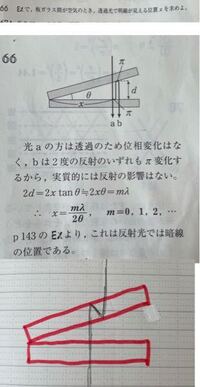 66 Exで、板ガラス間が空気のとき、透過光で明線が見える位置xを求めよ。
66
π
θ
d
x
π
a b
光aの方は透過のため位相変化はな
く、bは2度の反射のいずれもπ変化す
るから、実質的には反射の影響はない。
2d=2x tanθ≒2xθ=mλ
∴ x=mλ/2θ, m=0, 1, 2, …
p 143のEXより、これは反射光では暗線
の位置である。